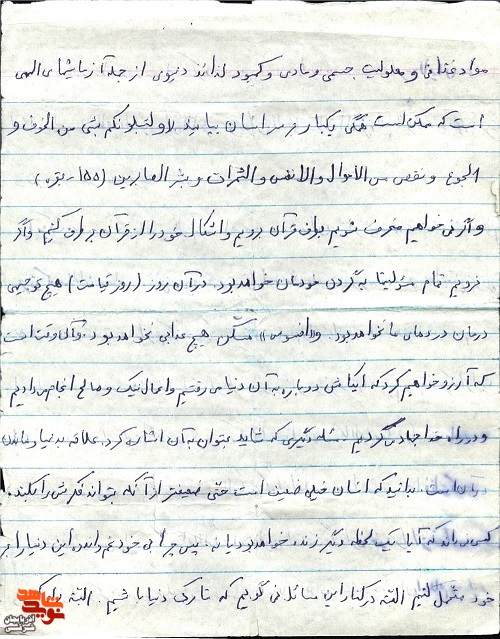 مواد غذائی و معلولیت جسمی و مادی و کمبود لذائذ دنیوی از جمله آزمایشهای الهی
است که ممکن است همگی یکبار بر سر انسان بیاید ولنبلونکم بشی من الخوف و
الجوع و نقص من الاموال والانفس والثمرات و بشر الصابرین (۱۵۵ - بقره)
و اگر نمی خواهیم منحرف شویم بطرف قرآن برویم و اشکال خود را از قرآن برطرف کنیم و اگر
نرویم تمام مسئولیتها به گردن خودمان خواهد بود. در آن روز (روز قیامت) هیچ توجیهی
درمان دردهای ما نخواهد بود. و «افسوس» مسکن هیچ عذابی نخواهد بود. و آن وقت است
که آرزو خواهیم کرد که ایکاش دوباره به آن دنیا می رفتیم و اعمال نیک و صالح انجام می دادیم
و در راه خدا جهاد می کردیم. مسئله دیگری که شاید بتوان به آن اشاره کرد علاقه به دنیا و ماندن
در آن است. بدانید که انسان خیلی ضعیف است حتی ضعیفتر از آنکه بتواند فکرش را بکند.
کسی نمی داند که آیا یک لحظه دیگر زنده خواهد بود یا نه. پس چرا بی خود غم و اندوه این دنیا را بر
خود تحمیل کنیم البته در کنار این مسائل نمی گویم که تارک دنیا باشیم. البته
نوید شاهد
آذربایجان شرقی